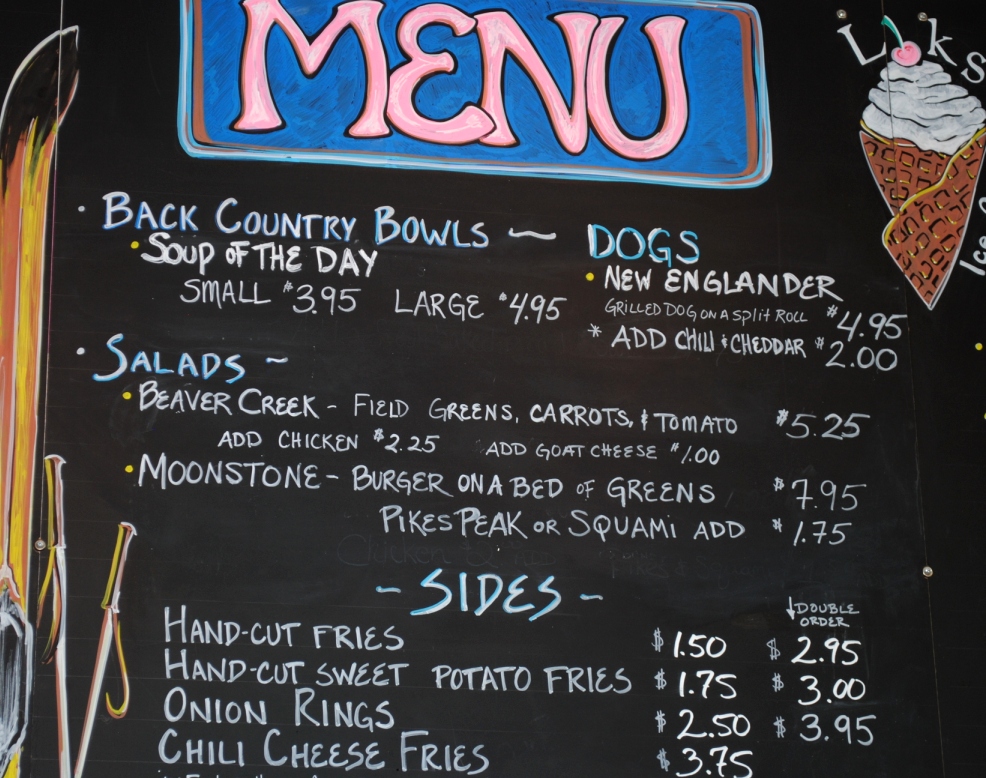 MENU
L ks
Ice
· BACK COUNTRY BOWLS ~
• SOUP OF THE DAY
SMALL $3.95 LARGE $4.95
DOGS
• NEW ENGLANDER
GRILLED DOG ON A SPLIT ROLL $4.95
* ADD CHILI & CHEDDAR $2.00
· SALADS ~
• BEAVER CREEK - FIELD GREENS, CARROTS, & TOMATO $5.25
ADD CHICKEN $2.25 ADD GOAT CHEESE $1.00
• MOONSTONE - BURGER ON A BED OF GREENS $7.95
PIKES PEAK OR SQUAMI ADD $1.75
- SIDES -
↓ DOUBLE
ORDER
HAND-CUT FRIES $1.50 $2.95
HAND-CUT SWEET POTATO FRIES $1.75 $3.00
ONION RINGS $2.50 $3.95
CHILI CHEESE FRIES $3.75